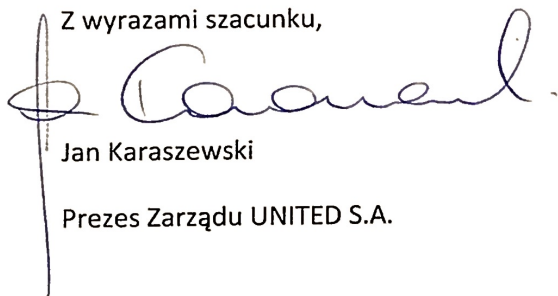 Z wyrazami szacunku,
Jan Karaszewski
Prezes Zarządu UNITED S.A.